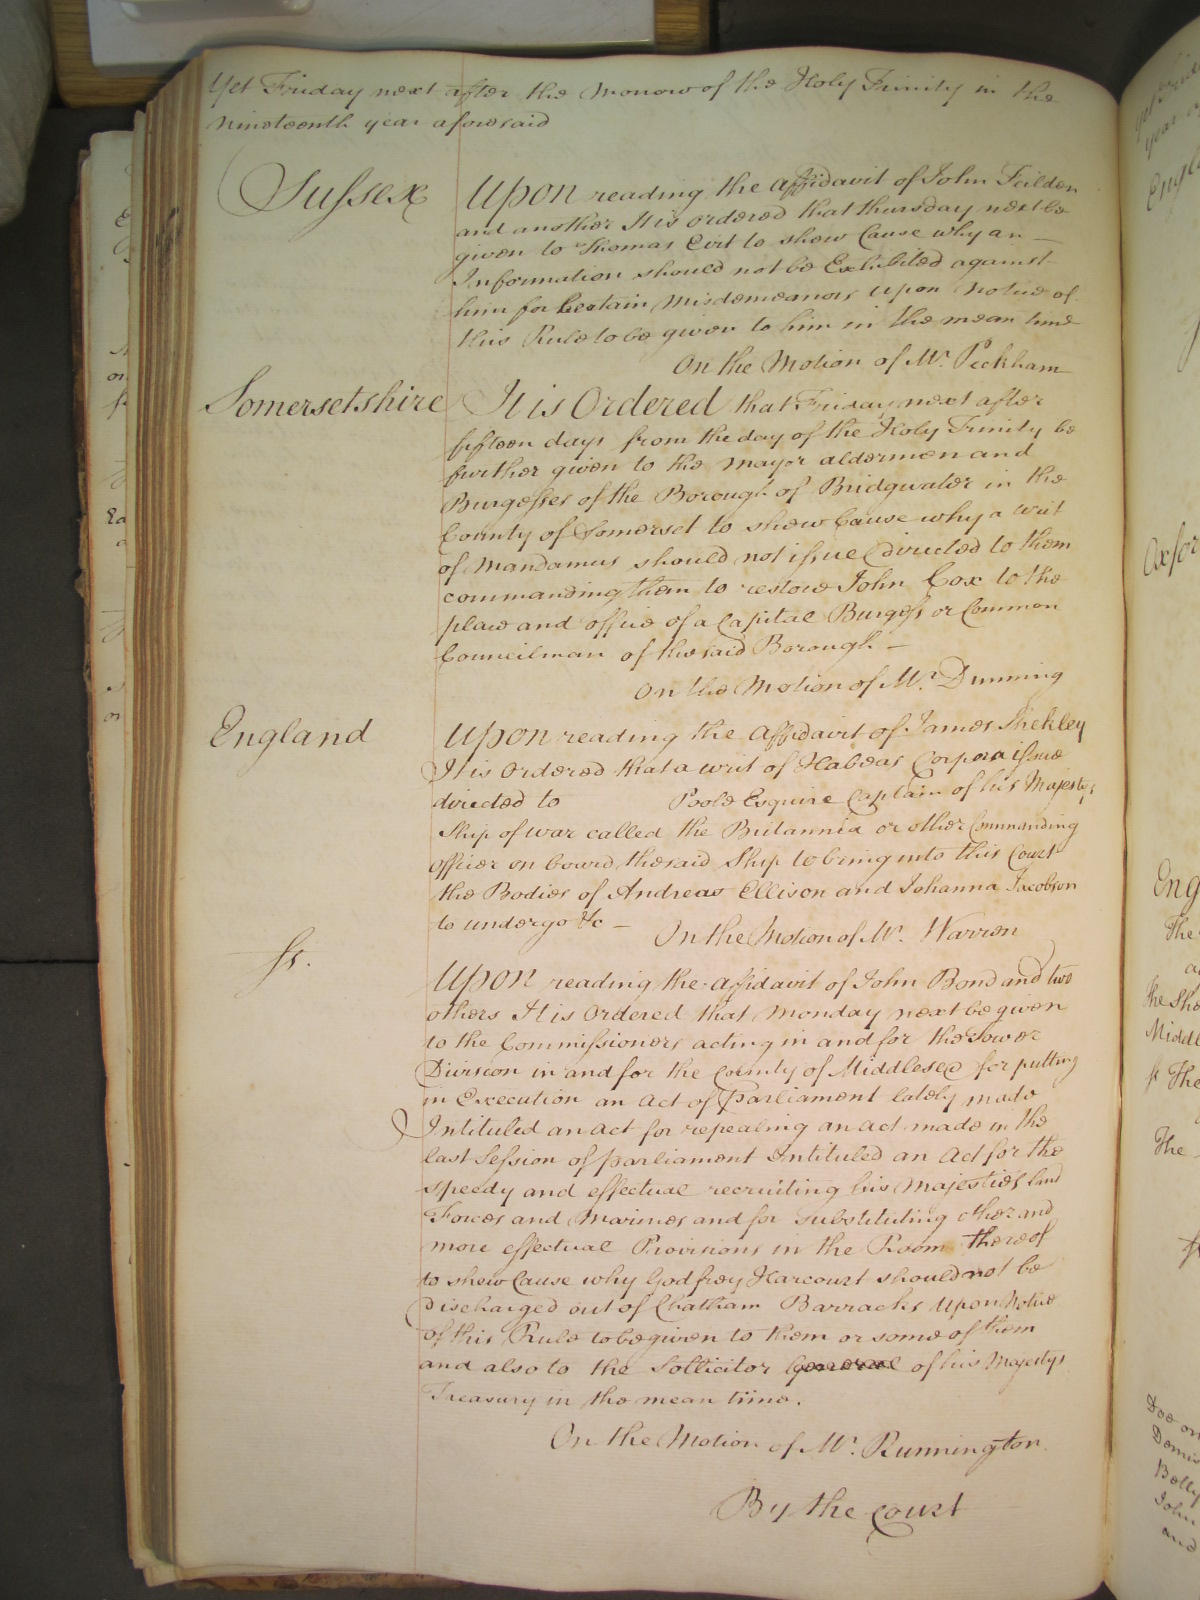 Yet Friday next after the Morrow of the Holy Trinity in the
Nineteenth year aforesaid
Sussex
Upon reading the Affidavit of John Feilden
and another It is ordered that thursday next be
given to Thomas Evit to shew Cause why an
Information should not be Exhibited against
him for Certain Misdemeanors upon Notice of
this Rule to be given to him in the mean time
On the Motion of Mr. Peckham
Somersetshire
It is Ordered that Friday next after
fifteen days from the day of the Holy Trinity be
further given to the Mayor aldermen and
Burgesses of the Borough of Bridgwater in the
County of Somerset to shew Cause why a writ
of Mandamus should not issue directed to them
commanding them to restore John Cox to the
place and office of a Capital Burgess or Common
Councilman of the said Borough
On the Motion of Mr. Dunning
England
Upon reading the Affidavit of James Shekley
It is Ordered that a writ of Habeas Corpora issue
directed to Poole Esquire Captain of his Majestys
Ship of war called the Britannia or other Commanding
officer on board the said Ship to bring into this Court
the Bodies of Andreas Ellison and Johanna Jacobson
to undergo &c
On the Motion of Mr. Warren
ss.
Upon reading the affidavit of John Bond and two
others It is Ordered that Monday next be given
to the Commissioners acting in and for the Tower
Division in and for the County of Middlesex for putting
in Execution an Act of Parliament lately made
Intituled an Act for repealing an act made in the
last Session of parliament Intituled an Act for the
speedy and effectual recruiting his Majesties land
Forces and Marines and for substituting other and
more effectual Provisions in the Room thereof
to shew Cause why Godfrey Harcourt should not be
discharged out of Chatham Barracks upon Notice
of this Rule to be given to them or some of them
and also to the Sollicitor General of his Majestys
Treasury in the mean time.
On the Motion of Mr. Runnington
By the Court